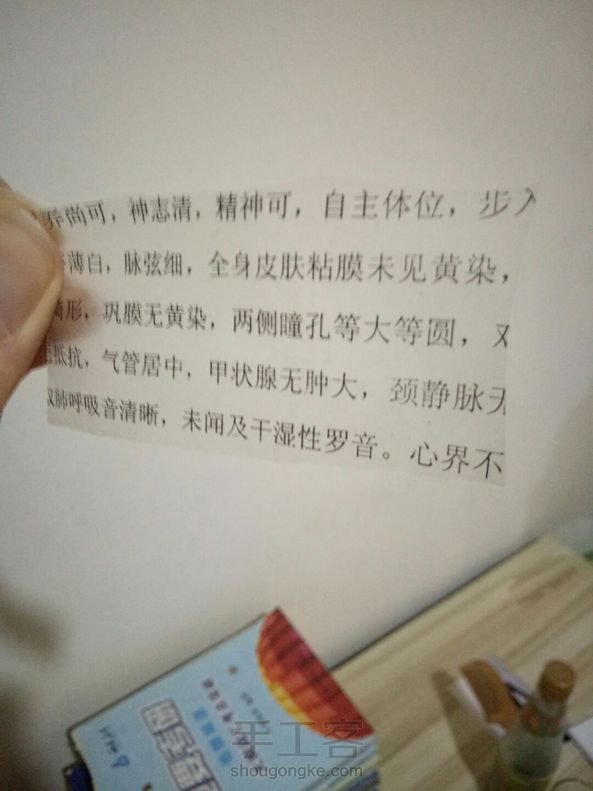 养尚可，神志清，精神可，自主体位，步入
薄白，脉弦细，全身皮肤粘膜未见黄染，
畸形，巩膜无黄染，两侧瞳孔等大等圆，对
抵抗，气管居中，甲状腺无肿大，颈静脉无
双肺呼吸音清晰，未闻及干湿性罗音。心界不
手工客
shougongke.com